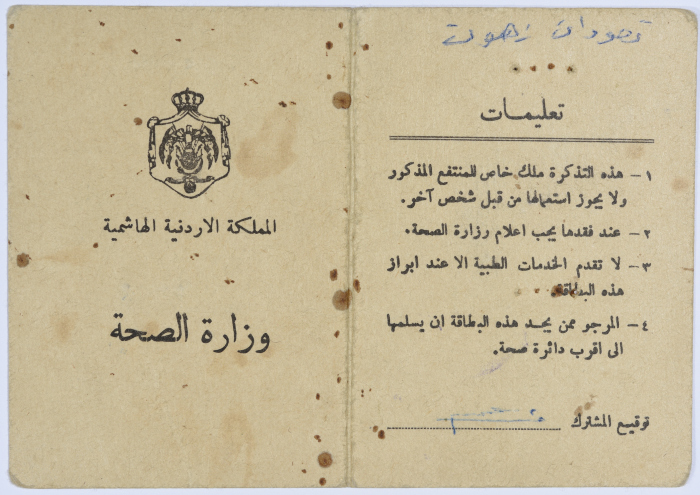 المملكة الاردنية الهاشمية
وزارة الصحة
تعليمات
١ – هذه التذكرة ملك خاص للمنتفع المذكور
ولا يجوز استعمالها من قبل شخص آخر.
٢ – عند فقدها يجب اعلام وزارة الصحة.
٣ – لا تقدم الخدمات الطبية الا عند ابراز
هذه البطاقة
٤ – المرجو ممن يجد هذه البطاقة ان يسلمها
الى اقرب دائرة صحة.
توقيع المشترك